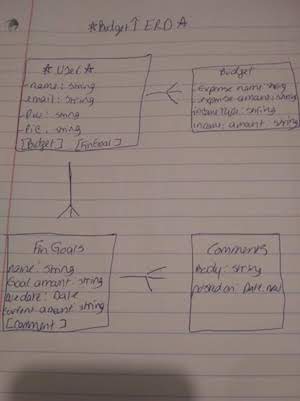 ☆Budget↑ ERD☆
☆ User ☆
-name: string
-email: string
-Pw: string
-Pic: string
[Budget] [FinGoal]
Budget
-Expense name: string
-expense amount: string
incometype: string
income amount: string
Fin Goals
name: string
Goal amount: string
Due date: Date
Current amount: string
[Comment]
Comments
Body: string
posted on: Date.now